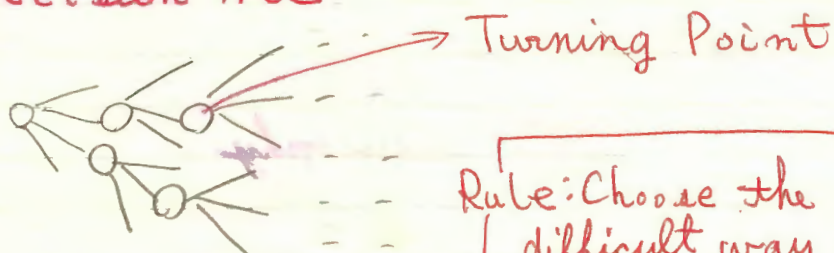 Turning Point
Rule: Choose the
difficult way